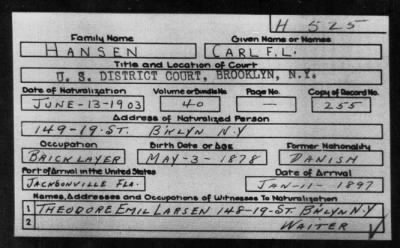 H 525
Family Name Given Name or Names
HANSEN CARL F.L.
Title and Location of Court
U. S. DISTRICT COURT, BROOKLYN, N.Y.
Date of Naturalization Volume or Bundle No. Page No. Copy of Record No.
JUNE-13-1903 40 — 255
Address of Naturalized Person
149-19-ST. B'KLYN N.Y
Occupation Birth Date or Age Former Nationality
BRICKLAYER MAY-3-1878 DANISH
Port of Arrival in the United States Date of Arrival
JACKSONVILLE FLA. JAN-11-1897
Names, Addresses and Occupations of Witnesses To Naturalization
1 THEODORE EMIL LARSEN 148-19-ST. B'KLYN N.Y
2 WAITER